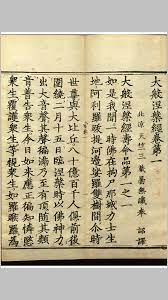 大般涅槃經卷第一
北涼天竺三藏曇無讖奉 詔譯
大般涅槃經壽命品第一之一
如是我聞一時佛在拘尸那城力士生
地阿利羅跋提河邊娑羅雙樹間爾時
世尊與大比丘八十億百千人俱前後
圍繞二月十五日臨涅槃時以佛神力
出大音聲其聲遍滿乃至有頂隨其類
音普告衆生今日如來應正徧知憐愍
衆生覆護衆生等視衆生如羅睺羅爲